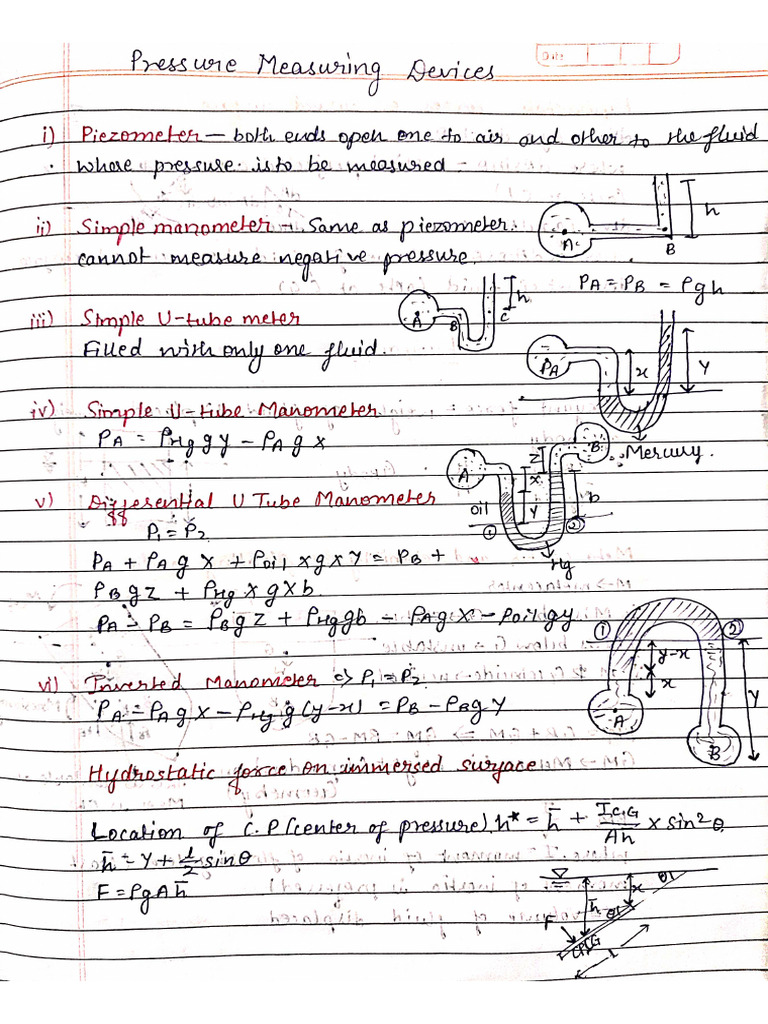 Date
Pressure Measuring Devices
i) Piezometer — both ends open one to air and other to the fluid
whose pressure is to be measured -
ii) Simple manometer - Same as piezometer.
cannot measure negative pressure
h
A
B
PA = PB = ρgh
iii) Simple U-tube meter
Filled with only one fluid.
A
B
C
h
PA
x
Y
Mercury.
iv) Simple U-tube Manometer
PA = ρHg g y - ρA g x
v) Differential U Tube Manometer
P1 = P2
PA + ρA g x + ρoil x g x Y = PB +
ρB g z + ρHg x g x b
PA - PB = ρB g z + ρHg g b - ρA g x - ρoil g y
A
B
z
x
Y
b
oil
①
②
Hg
vi) Inverted Manometer => P1 = P2
PA - ρA g x - ρHg g (y-x) = PB - ρB g Y
①
②
y-x
x
Y
A
B
Hydrostatic force on immersed surface
Location of C.P (center of pressure) h* = h̄ + IC.G/Ah̄ x sin²θ
h̄ = Y + 1/2 sinθ
F = ρgAh̄
h̄
x
θ
F
θ
CP
CG
L